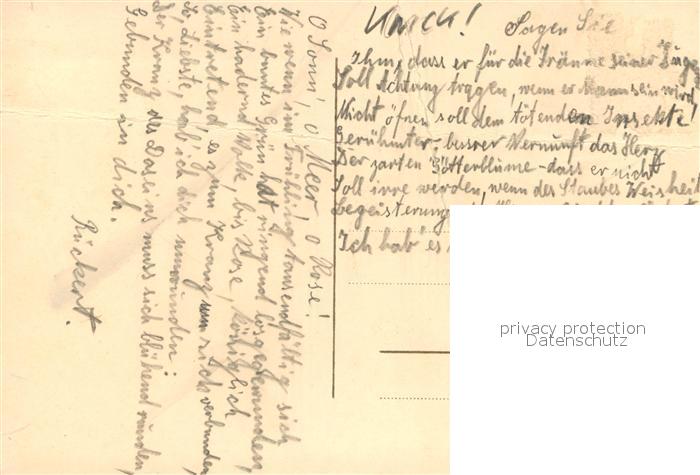 O Sonn', o Meer o Rose!
Wie wenn im Frühling tausendfältig sich
Ein buntes Grün hat ringend losgewunden,
Ein hadernd Volk, bis Rose, königlich
Eintretend, es zum Kranz um sich verbunden,
So Liebste, hab' ich dich umwunden:
Der Kranz des Daseins muss sich blühend runden,
Gebunden in dich.
Rückert.
Sagen Sie
Ihm, dass er für die Träume seiner Jugend
Soll Achtung tragen, wenn er Mann sein wird
Nicht öfnen soll dem tötenden Insekte
Gerühmter bessrer Vernunft das Herz
Der zarten Götterblume - dass er nicht
Soll irre werden, wenn des Staubes Weisheit
Begeisterung
Ich hab' es
privacy protection
Datenschutz